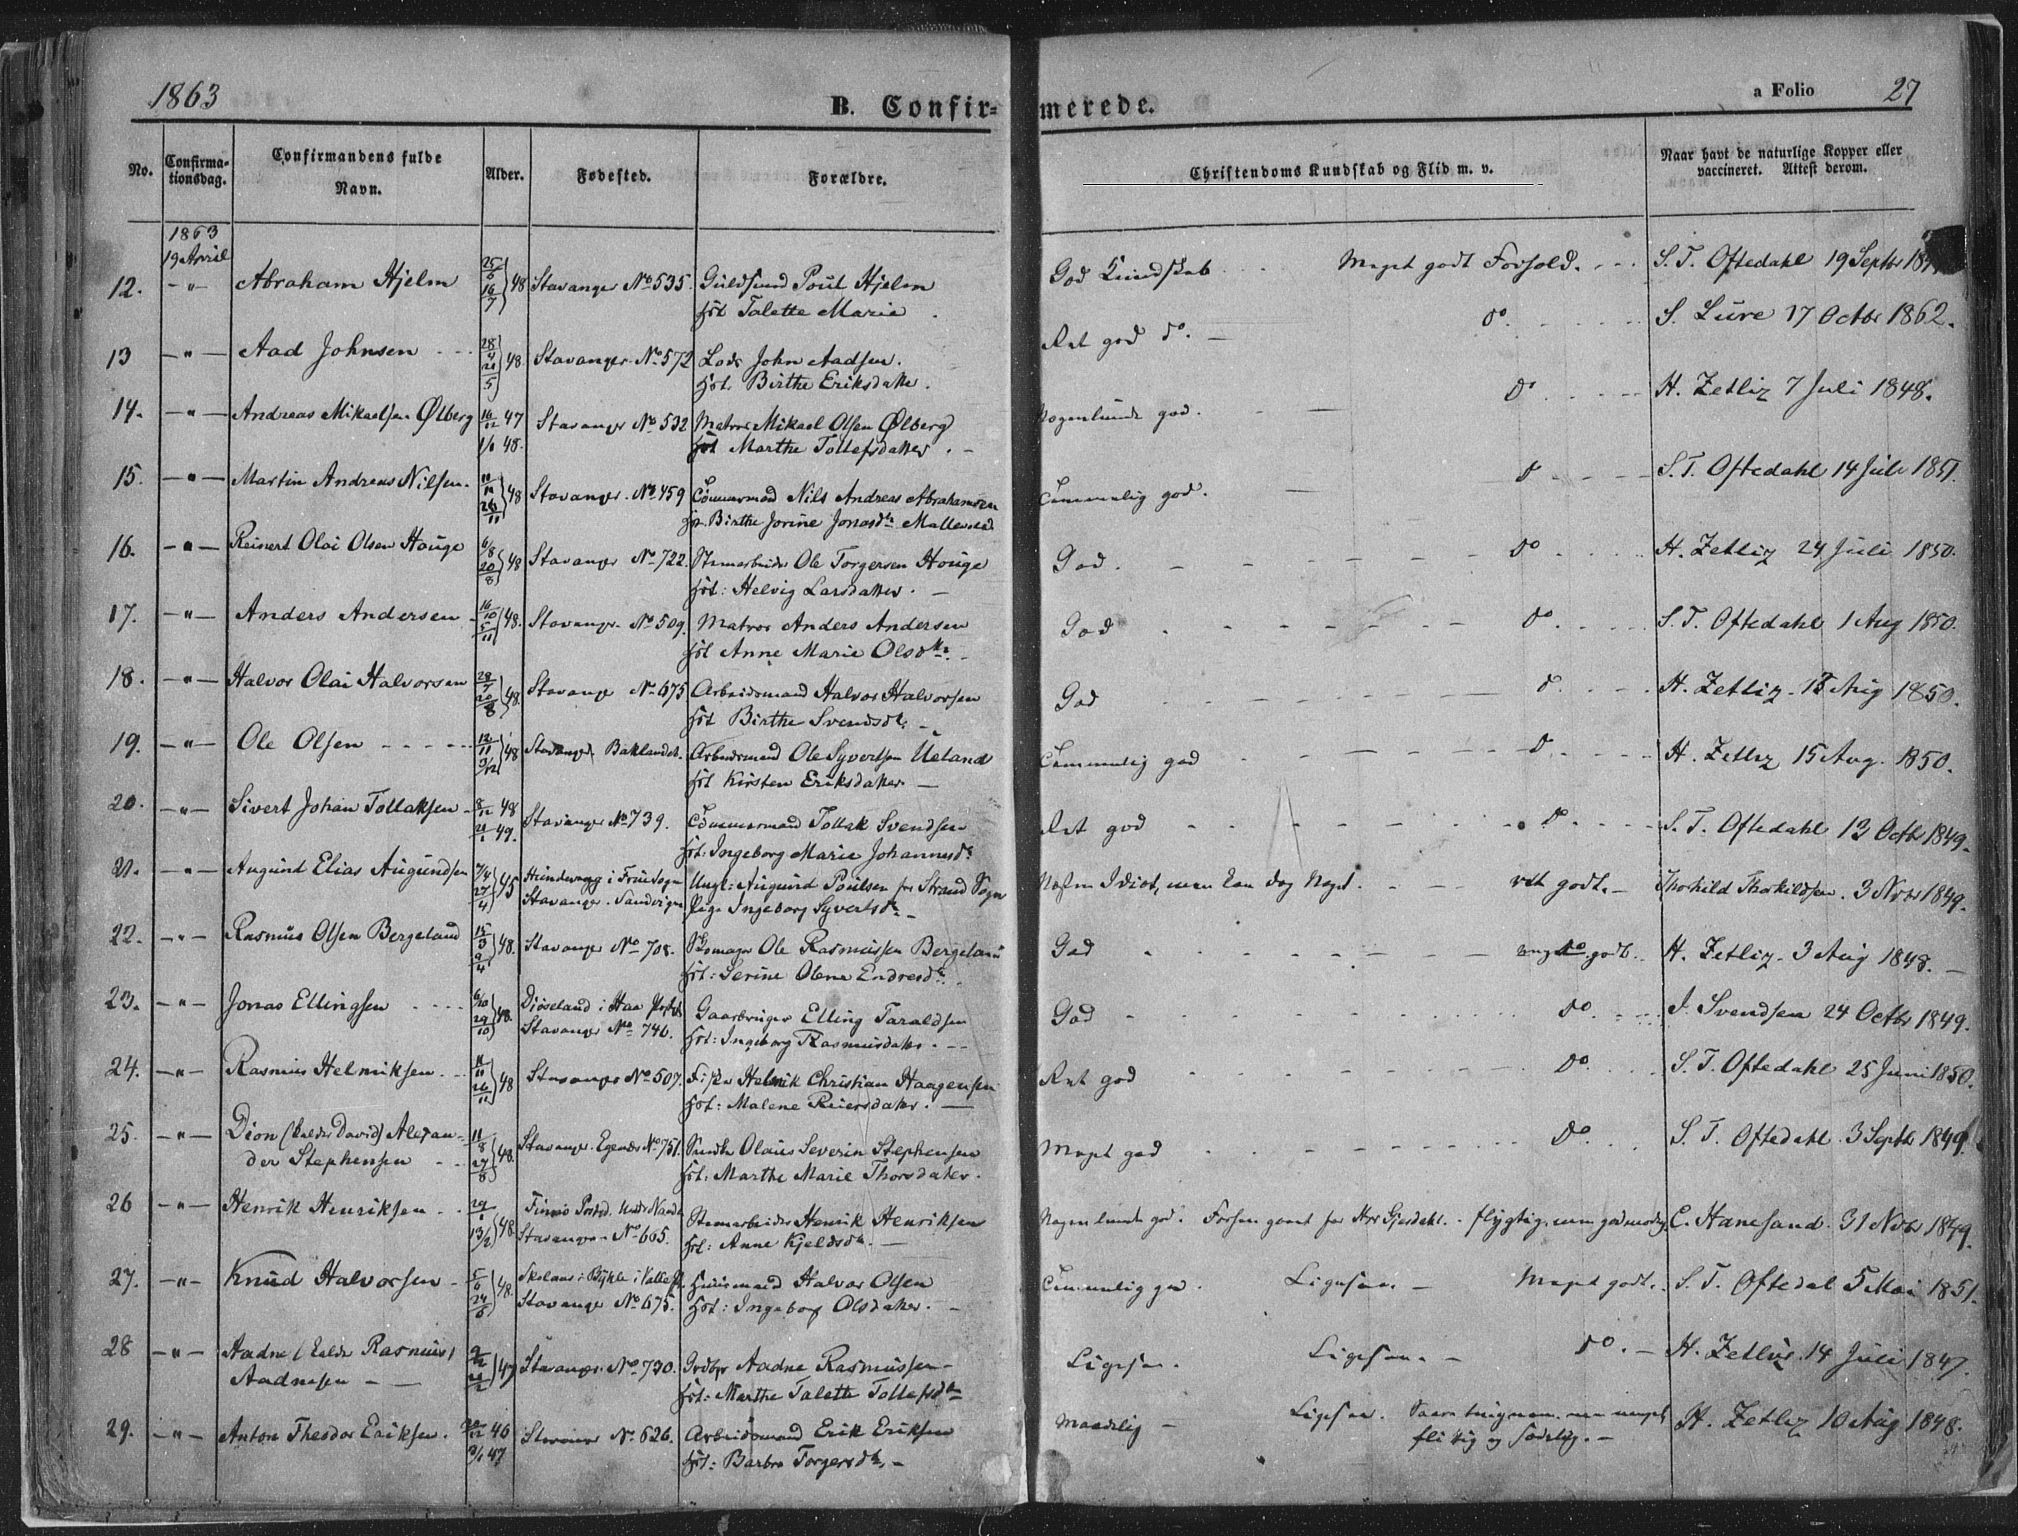 1863
B. Confirmerede.
a Folio 27
No.
Confirmationsdag.
Confirmandens fulde Navn.
Alder.
Fødested.
Forældre.
Christendoms Kundskab og Flid m. v.
Naar havt de naturlige Kopper eller vaccineret. Attest derom.
1863
19 April
12. -"- Abraham Hjelm 25/6 16/7 48 Stavanger No 535. Guldsmed Poul Hjelm God Kundskab Meget godt Forhold. S. T. Oftedahl 19 Septbr
Hst Talette Marie
13 -"- Aad Johnsen 28/4 21/5 48 Stavanger No 572 Lods John Aadsen. Ret god do. do. S. Lure 17 Octbr 1862.
Hst. Birthe Eriksdatter.
14. -"- Andreas Mikaelsen Ølberg 16/12 47 1/1 48. Stavanger No 532 Matros Mikael Olsen Ølberg Nogenlunde god. do H. Zetliz 7 Juli 1848.
Hst Marthe Tollefsdatter.
15. -"- Martin Andreas Nilsen. 11/11 26/11 48 Stavanger No 459 Tømmermand Nils Andreas Abrahamsen Temmelig god. do S. T. Oftedahl 14 Juli 1851.
Hst. Birthe Jorine Jonasdtr
16. -"- Reinert Olai Olsen Houge 6/8 20/8 48 Stavanger No 722. Stenarbeider Ole Torgersen Houge God. do H. Zetliz 24 Juli 1850.
Hst: Helvig Larsdatter.
17. -"- Anders Andersen 16/10 5/11 48. Stavanger No 509. Matros Anders Andersen God do. S. T. Oftedahl 1 Aug 1850.
Hst Anne Marie Olsdtr.
18. -"- Halvor Olai Halvorsen 28/7 20/8 48. Stavanger No 675 Arbeidsmand Halvor Halvorsen God do. H. Zetliz Aug 1850.
Hst Birthe Svendsdtr.
19. -"- Ole Olsen 12/11 3/12 48 Stavanger, Baklandet. Arbeidsmand Ole Syvertsen Ueland Temmelig god do. H. Zetliz 15 Aug. 1850.
Hst Kirsten Eriksdatter
20. -"- Sivert Johan Tollaksen 8/12 48 21/1 49. Stavanger No 739. Tømmermand Tollak Svendsen Ret god do. S. T. Oftedahl 12 Octbr 1849.
Hst: Ingeborg Marie Johannesdtr
21. -"- Augund Elias Augundsen 7/4 27/4 45 i Frue Sogn Ungk: Augund Poulsen fra Strand Sogn Næsten Idiot, men kan dog Noget. ret godt. Thorkild Thorkildsen. 3 Novbr 1849.
Stavanger. Sandvigen Pige Ingeborg Syvertsdtr
22. -"- Rasmus Olsen Bergeland 15/3 9/4 48. Stavanger No 708. Skomager Ole Rasmussen Bergeland God meget godt. H. Zetliz 3 Aug 1848.
Hst: Serine Olene Endresdtr.
23. -"- Jonas Ellingsen 6/10 29/10 48. i Haa Prstgj. Gaardbruger Elling Taraldsen God do. J. Svendsen 24 Octbr 1849.
Stavanger No 746. Hst: Ingeborg Rasmusdatter.
24. -"- Rasmus Helmiksen 11/11 26/11 48 Stavanger No 507. Fisker Helmik Christian Haagensen Ret god do. S. T. Oftedahl 25 Juni 1850.
Hst: Malene Reiersdatter.
25. -"- Dion (kaldes David) Alexander Stephensen 11/8 27/8 48. Stavanger. Egenæs No 751. Olaus Severin Stephensen Meget god do. S. T. Oftedahl 3 Septbr 1849.
Hst: Marthe Marie Thorsdatter.
26 -"- Henrik Henriksen 29/1 13/2 48. Stenarbeider Henrik Henriksen Nogenlunde god. flygtig, men godmodig C. Hanesand. 31 Novbr 1849.
Stavanger No 665. Hst: Anne Kjeldsdtr.
27. -"- Knud Halvorsen 48. i Bykle i Valle Husmand Halvor Olsen Temmelig god. Ligesaa. Meget godt. S. T. Oftedal 5 Mai 1851.
Stavanger No 675. Hst: Ingeborg Olsdatter.
28 -"- Aadne (kaldes Rasmus) Aadnesen 47 Stavanger No 730. Aadne Rasmussen Ligesaa. Ligesaa. do. H. Zetliz. 14 Juli 1847.
Hst: Marthe Talette Tollefsdtr
29. -"- Anton Theodor Eriksen. 46 9/1 47 Stavanger No 626. Arbeidsmand Erik Eriksen Maadelig Ligesaa. flittig og sædelig. H. Zetliz 10 Aug 1848.
Hst: Barbro Torgersdtr.